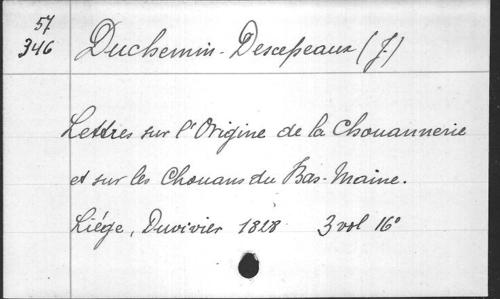 57
346
Duchemin-Descepeaux (J.)
Lettres sur l'Origine de la Chouannerie
et sur les Chouans du Bas-Maine.
Liége, Duvivier 1828 3 vol 16°